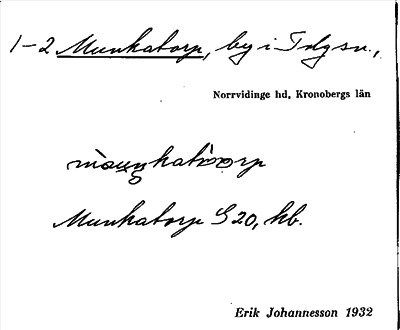 1-2 Munkatorp, by i Tdgsn.,
Norrvidinge hd, Kronobergs län
Munkatorp S 20, kb.
Erik Johannesson 1932